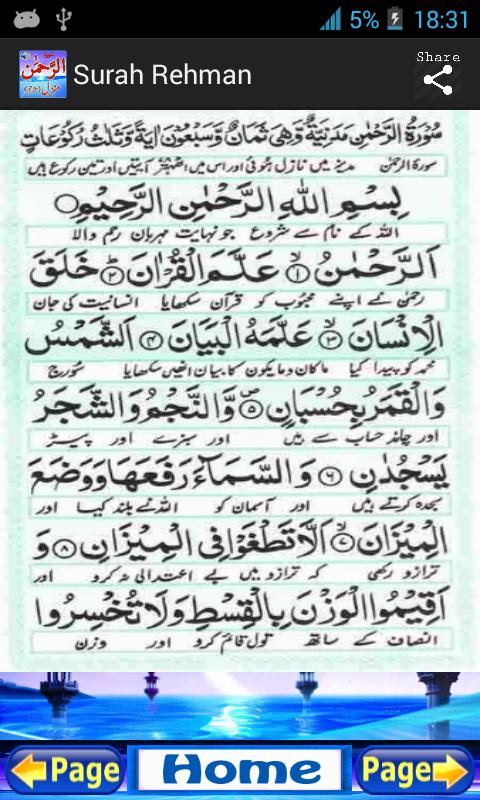 5% 18:31
Surah Rehman
Share
سُوْرَةُ الرَّحْمٰنِ مَدَنِيَّةٌ وَّهِيَ ثَمَانٌ وَّسَبْعُوْنَ اٰيَةً وَّثَلٰثُ رُكُوْعَاتٍ
سورۃ الرحمٰن مدینے میں نازل ہوئی اور اس میں اٹھہتر آیتیں اور تین رکوع ہیں
بِسْمِ اللّٰهِ الرَّحْمٰنِ الرَّحِيْمِ
اللہ کے نام سے شروع جو نہایت مہربان رحم والا
اَلرَّحْمٰنُ ۙ﴿۱﴾ عَلَّمَ الْقُرْاٰنَ ؕ﴿۲﴾ خَلَقَ
رحمٰن نے اپنے محبوب کو قرآن سکھایا انسانیت کی جان
الْاِنْسَانَ ۙ﴿۳﴾ عَلَّمَهُ الْبَيَانَ ﴿۴﴾ اَلشَّمْسُ
محمد کو پیدا کیا ماکان ومایکون کا بیان انھیں سکھایا سورج
وَالْقَمَرُ بِحُسْبَانٍ ۪﴿۵﴾ وَّالنَّجْمُ وَالشَّجَرُ
اور چاند حساب سے ہیں اور سبزے اور پیڑ
يَسْجُدٰنِ ﴿۶﴾ وَالسَّمَآءَ رَفَعَهَا وَوَضَعَ
سجدہ کرتے ہیں اور آسمان کو اللہ نے بلند کیا اور
الْمِيْزَانَ ۙ﴿۷﴾ اَلَّا تَطْغَوْا فِي الْمِيْزَانِ ﴿۸﴾ وَ
ترازو رکھی کہ ترازو میں بے اعتدالی نہ کرو اور
اَقِيْمُوا الْوَزْنَ بِالْقِسْطِ وَلَا تُخْسِرُوا
انصاف کے ساتھ تول قائم کرو اور وزن
Page Home Page